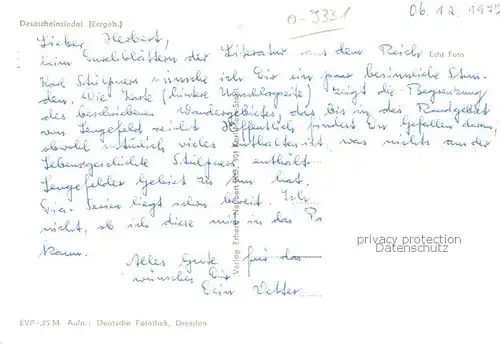 Deutscheinsiedel (Erzgeb.)
0-9331
06.12.1977
Lieber Herbert,
beim Durchblättern der Literatur aus dem Reich
Echt Foto
Karl Stülpners wünsche ich Dir ein paar besinnliche Stun-
den. Die Karte (hintere Umschlagseite) zeigt die Begrenzung
des beschriebenen Wandergebietes, das bis in das Randgebiet
von Lengefeld reicht. Hoffentlich findest Du Gefallen daran,
obwohl natürlich vieles enthalten ist, was nichts aus der
Lebensgeschichte Stülpners enthält
Lengefelder Gebiet zu tun hat.
Dia-Serien liegt schon bereit. Ich
nicht, ob ich diese mir in das
kann.
Alles Gute für das
wünscht Dir
Dein Vetter
Verlag Erhard Neubert KG, 901 Karl-Marx-Stadt
privacy protection
Datenschutz
EVP -,25 M Aufn.: Deutsche Fotothek, Dresden